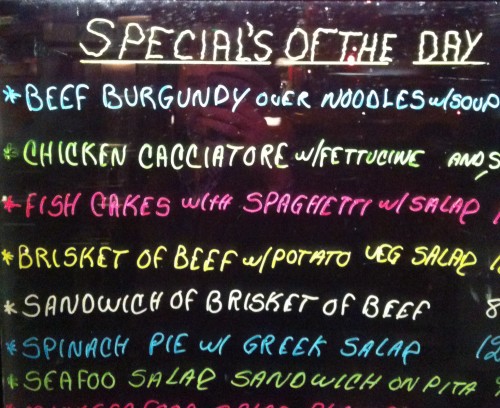 SPECIAL'S OF THE DAY
* BEEF BURGUNDY OVER NOODLES w/SOUP
* CHICKEN CACCIATORE w/FETTUCINE AND S
* FISH CAKES WITH SPAGHETTI w/SALAD
* BRISKET OF BEEF w/POTATO VEG SALAD
* SANDWICH OF BRISKET OF BEEF 8
* SPINACH PIE w/ GREEK SALAD 12
* SEAFOO SALAD SANDWICH ON PITA